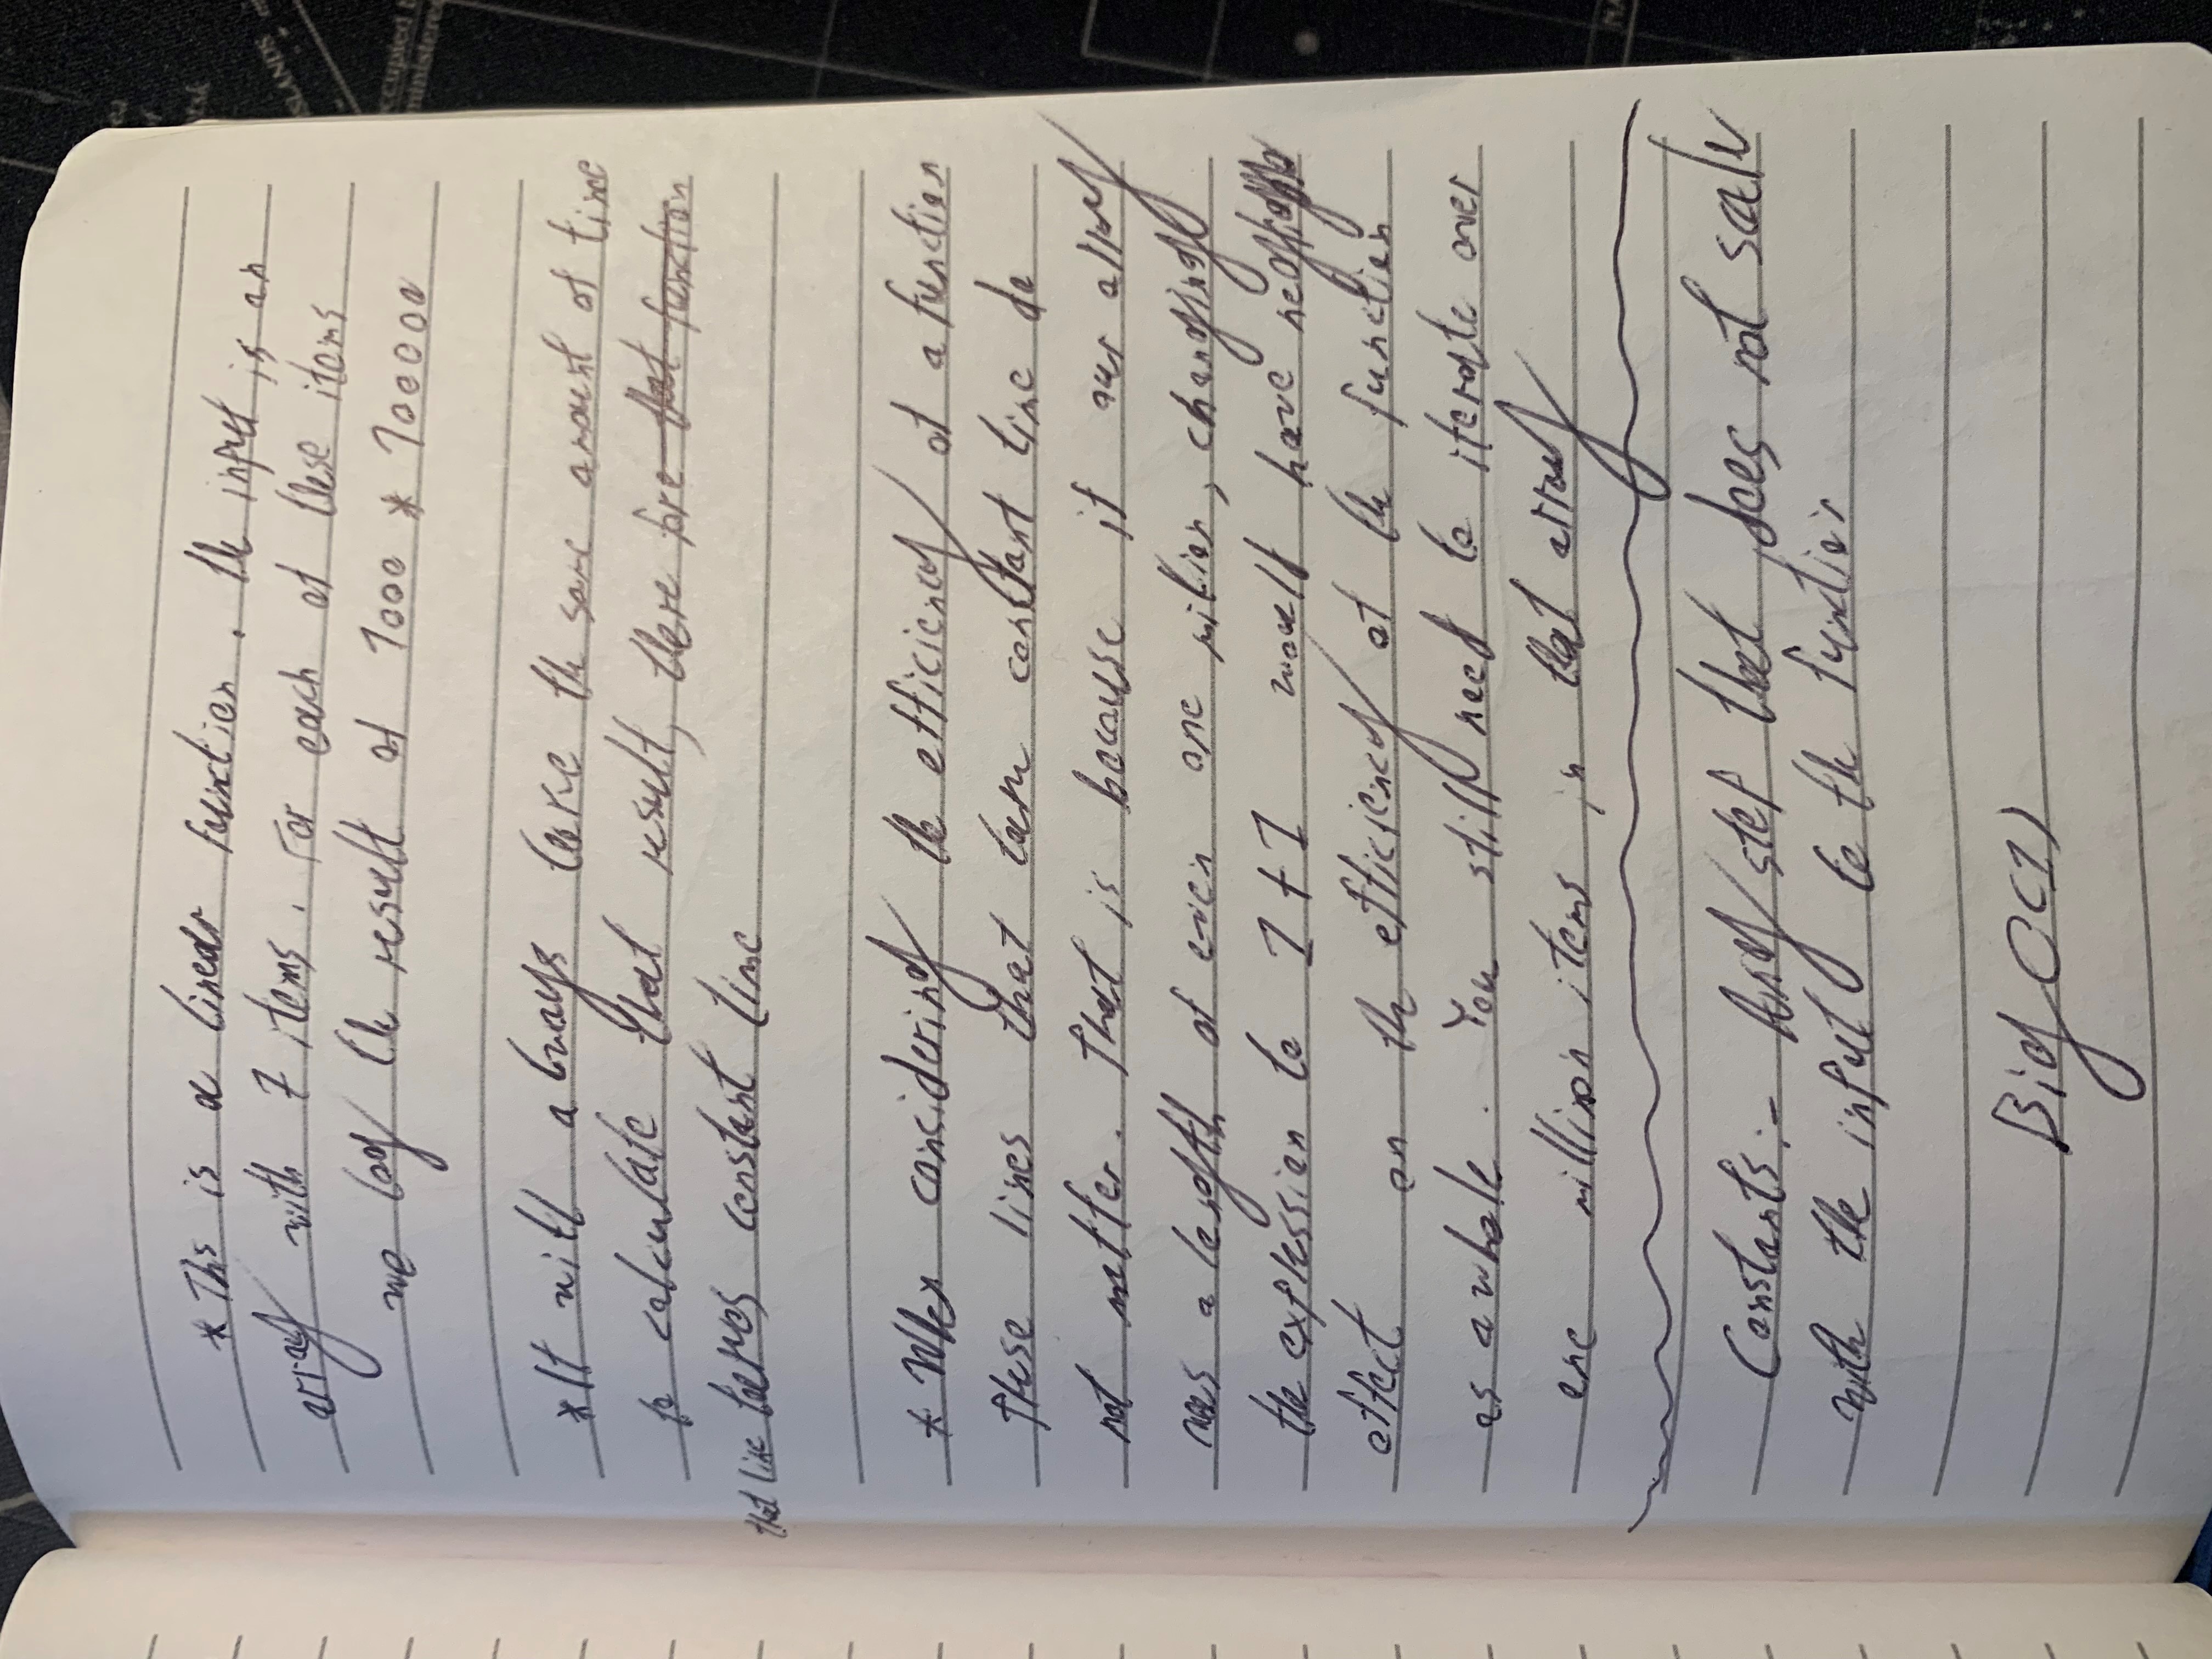 * This is a linear function. the input is an
array with 7 items. For each of these items
we log the result of 1000 * 10000
* It will always take the same amount of time
to calculate that result, there fore that function
that line takes constant time
* When considering the efficiency of a function
these lines that take constant time do
not matter. That is because if our array
was a length of even one million, changing
the expression to 1 + 1 would have negligible
effect on the efficiency of the function
as a whole. You still need to iterate over
one million items in that array
Constants:- Any step that does not scale
with the input to the function
Big O(1)